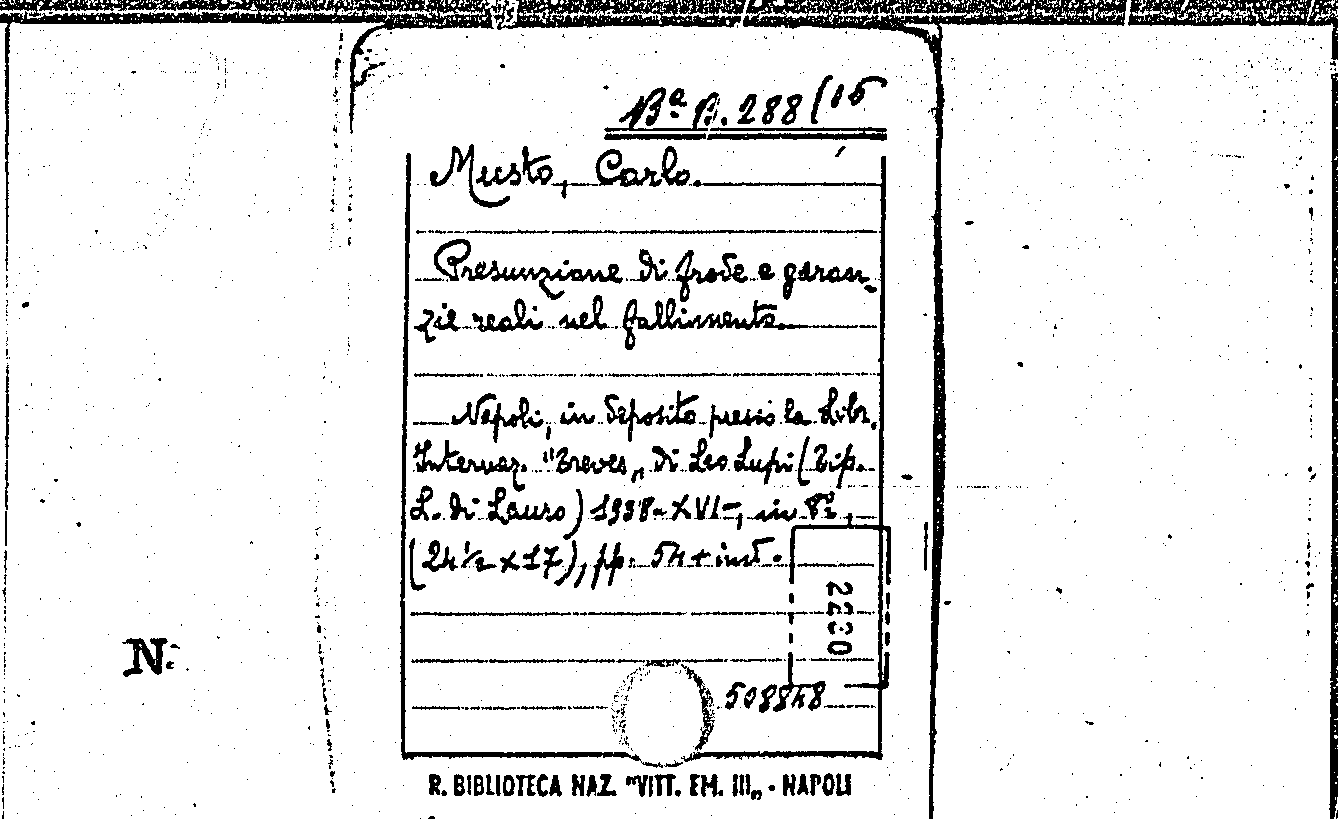 Bª B. 288/15
Musto, Carlo.
Presunzione di frode e garan-
zie reali nel fallimento.
Napoli, in deposito presso la Libr.
Internaz. "Treves„ di Leo Lupi (Tip.
L. di Lauro) 1938-XVI-, in 8º,
(24½ x 17), pp. 54 + ind.
2230
508848
N:
R. BIBLIOTECA NAZ. "VITT. EM. III„ - NAPOLI